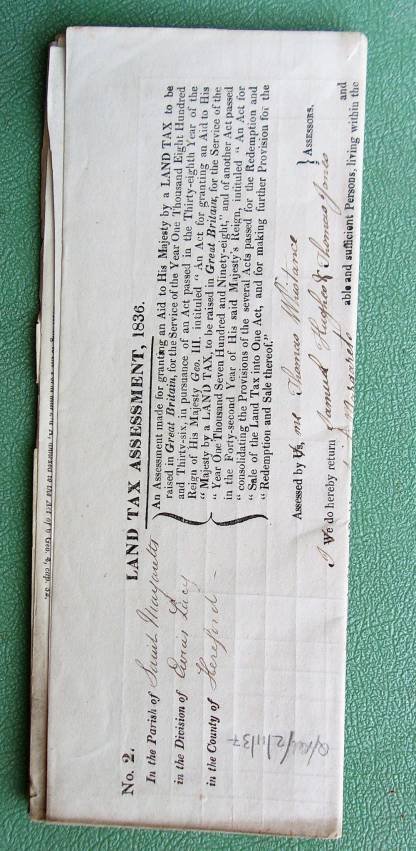 No. 2.
LAND TAX ASSESSMENT, 1836.
In the Parish of Saint Margaretts
in the Division of Ewias Lacy
in the County of Hereford
An Assessment made for granting an Aid to His Majesty by a LAND TAX to be
raised in Great Britain, for the Service of the Year One Thousand Eight Hundred
and Thirty-six, in pursuance of an Act passed in the Thirty-eighth Year of the
Reign of His Majesty Geo. III. intituled " An Act for granting an Aid to His
" Majesty by a LAND TAX, to be raised in Great Britain, for the Service of the
" Year One Thousand Seven Hundred and Ninety-eight," and of another Act passed
in the Forty-second Year of His said Majesty's Reign, intituled " An Act for
" consolidating the Provisions of the several Acts passed for the Redemption and
" Sale of the Land Tax into One Act, and for making further Provision for the
" Redemption and Sale thereof."
Assessed by Us, me Thomas Whistance } ASSESSORS.
I We do hereby return Samuel Hughes & Thomas Jones and
able and sufficient Persons, living within the